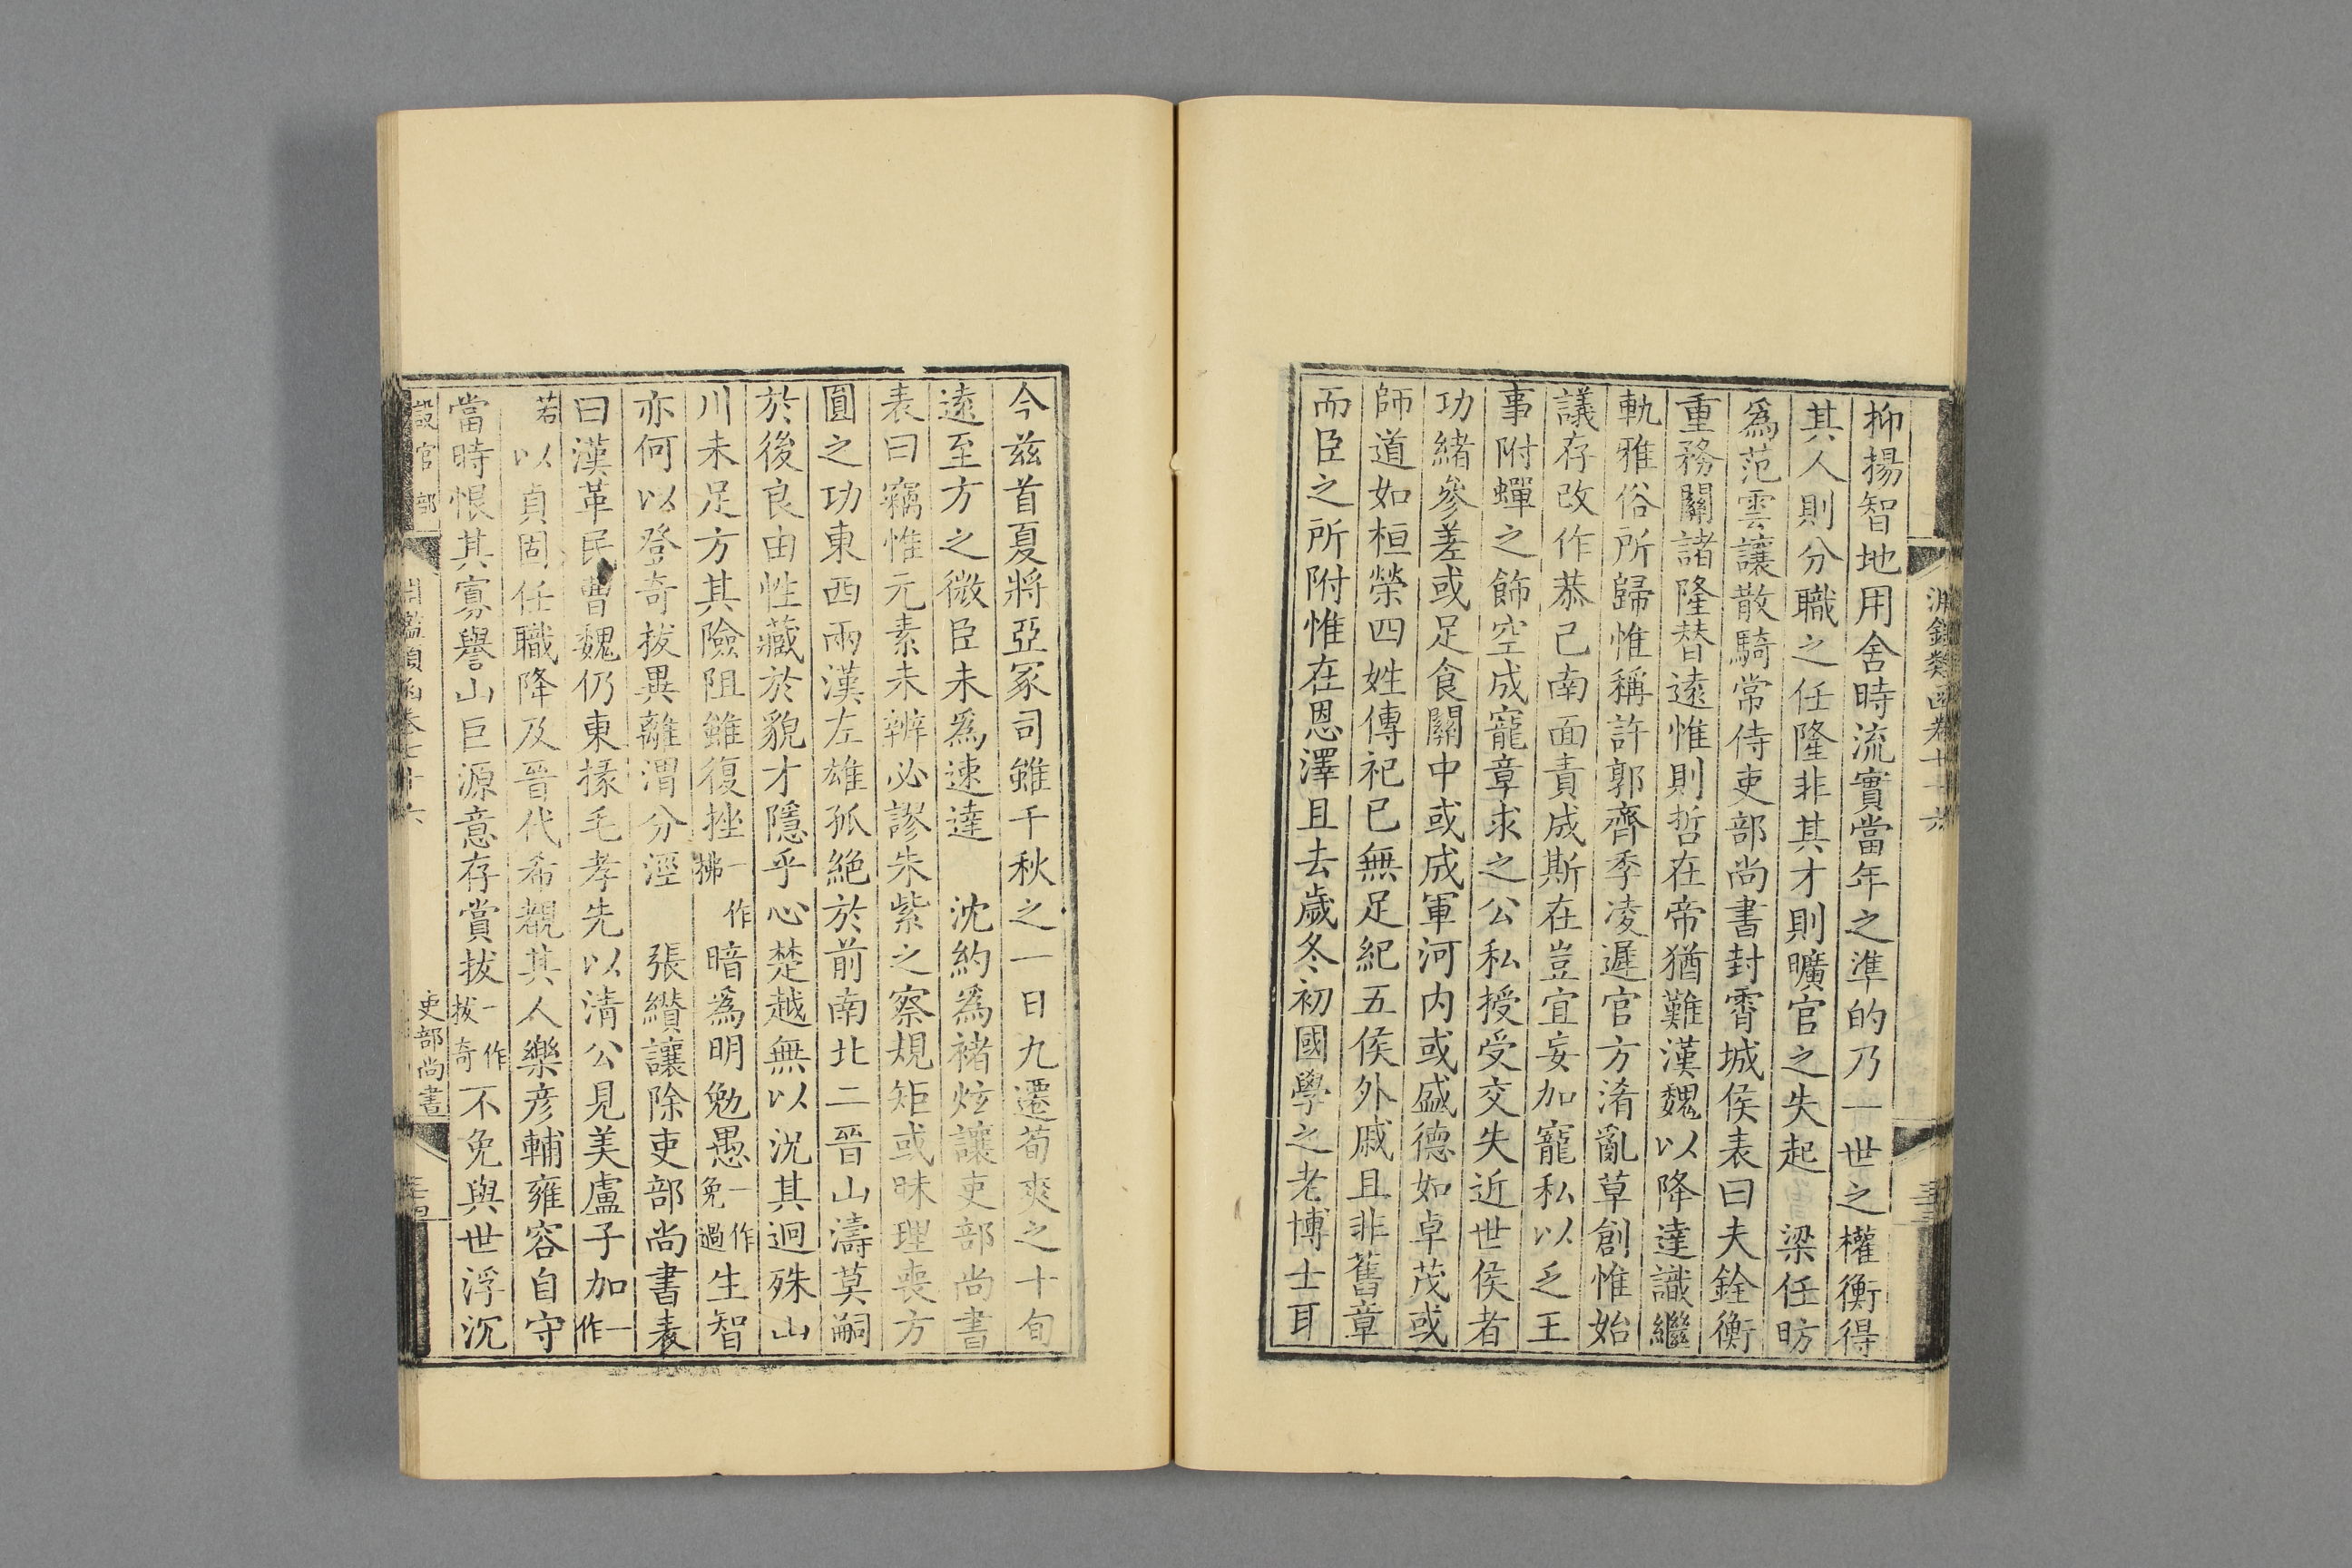 淵鑑類函卷七十六
抑揚智地用舍時流實當年之準的乃一世之權衡得
其人則分職之任隆非其才則曠官之失起　梁任昉
爲范雲讓散騎常侍吏部尚書封霄城侯表曰夫銓衡
重務關諸隆替遠惟則哲在帝猶難漢魏以降達識繼
軌雅俗所歸惟稱許郭齊季凌遲官方淆亂草創惟始
議存改作恭己南面責成斯在豈宜妄加寵私以乏王
事附蟬之飾空成寵章求之公私授受交失近世侯者
功緒參差或足食關中或成軍河内或盛德如卓茂或
師道如桓榮四姓傳祀已無足紀五侯外戚且非舊章
而臣之所附惟在恩澤且去歲冬初國學之老博士耳
今茲首夏將亞冢司雖千秋之一日九遷荀爽之十旬
遠至方之微臣未爲速達　沈約爲褚炫讓吏部尚書
表曰竊惟元素未辨必謬朱紫之察規矩或昧理喪方
圓之功東西兩漢左雄孤絶於前南北二晉山濤莫嗣
於後良由性藏於貌才隱乎心楚越無以況其迥殊山
川未足方其險阻雖復挫一作拂暗爲明勉愚一作免過生智
亦何以登奇拔異離渭分涇　張纘讓除吏部尚書表
曰漢革民曹魏仍東掾毛孝先以清公見美盧子加一作
若以貞固任職降及晉代希覩其人樂彦輔雍容自守
當時恨其寡譽山巨源意存賞拔一作拔奇不免與世浮沉
設官部　淵鑑類函卷七十六　吏部尚書